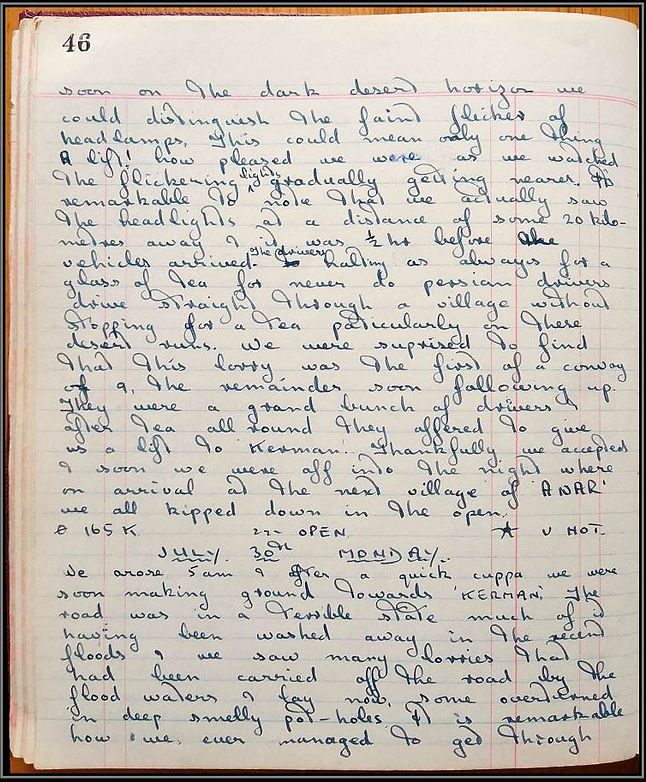 46
soon on the dark desert horizon we
could distinguish the faint flicker of
headlamps. This could mean only one thing
A lift! how pleased we were as we watched
the flickering lights gradually getting nearer. It's
remarkable to note that we actually saw
the headlights at a distance of some 20 kilo-
metres away & it was ½ hr before the
vehicles arrived. The drivers halting as always for a
glass of tea for never do persian drivers
drive straight through a village without
stopping for a tea paticularly on these
desert runs. We were suprised to find
that this lorry was the first of a convoy
of 9, the remainder soon following up.
They were a grand bunch of drivers &
after tea all round they offered to give
us a lift to 'Kerman'. Thankfully we accepted
& soon we were off into the night where
on arrival at the next village of 'ANAR'
we all kipped down in the open.
165 K. OPEN. V HOT.
JULY. 30th MONDAY.
We arose 5am & after a quick cuppa we were
soon making ground towards 'KERMAN'. The
road was in a terrible state much of it
having been washed away in the recent
floods & we saw many lorries that
had been carried off the road by the
flood waters & lay now, some overturned
in deep smelly pot-holes It is remarkable
how we, ever managed to get through